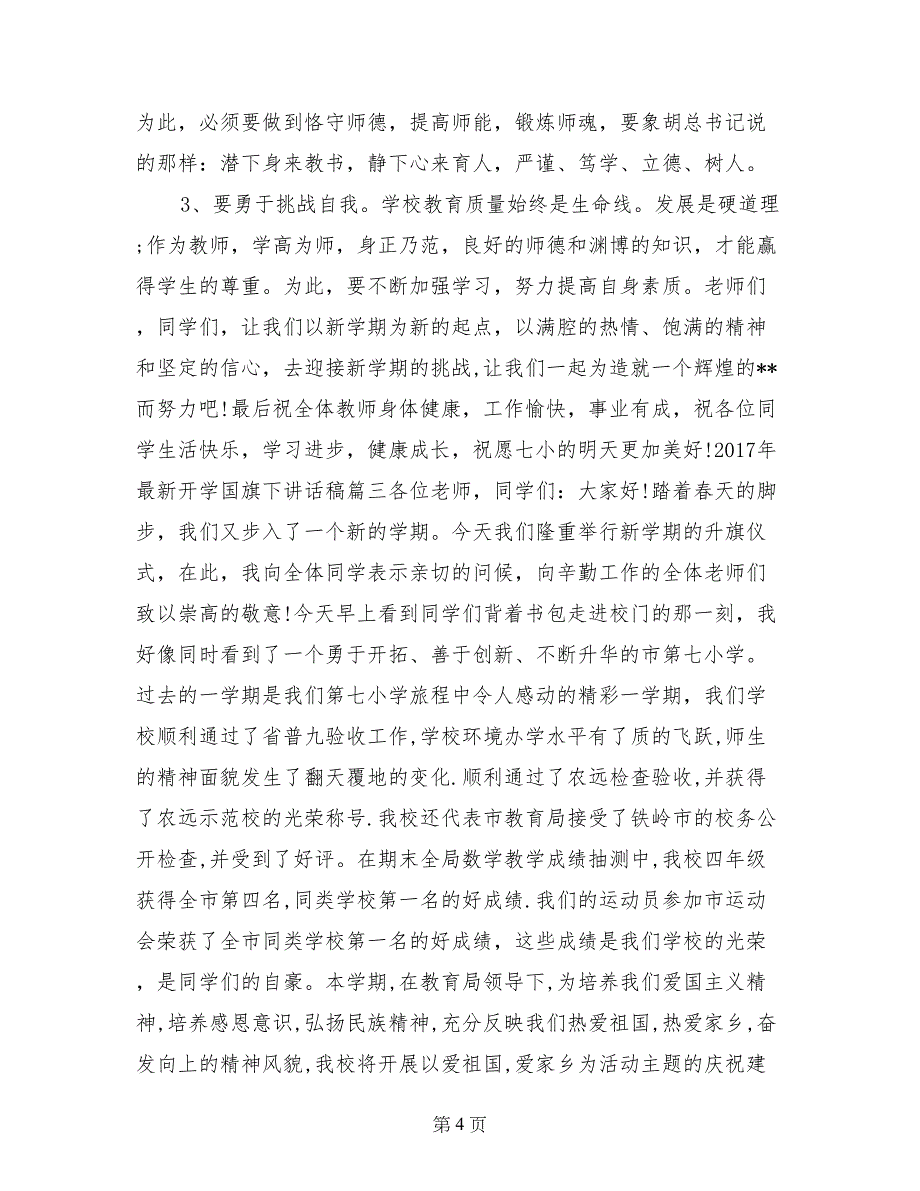 为此，必须要做到恪守师德，提高师能，锻炼师魂，要象胡总书记说
的那样：潜下身来教书，静下心来育人，严谨、笃学、立德、树人。
3、要勇于挑战自我。学校教育质量始终是生命线。发展是硬道理
;作为教师，学高为师，身正乃范，良好的师德和渊博的知识，才能赢
得学生的尊重。为此，要不断加强学习，努力提高自身素质。老师们
，同学们，让我们以新学期为新的起点，以满腔的热情、饱满的精神
和坚定的信心，去迎接新学期的挑战,让我们一起为造就一个辉煌的**
而努力吧!最后祝全体教师身体健康，工作愉快，事业有成，祝各位同
学生活快乐，学习进步，健康成长，祝愿七小的明天更加美好!2017年
最新开学国旗下讲话稿篇三各位老师，同学们：大家好!踏着春天的脚
步，我们又步入了一个新的学期。今天我们隆重举行新学期的升旗仪
式，在此，我向全体同学表示亲切的问候，向辛勤工作的全体老师们
致以崇高的敬意!今天早上看到同学们背着书包走进校门的那一刻，我
好像同时看到了一个勇于开拓、善于创新、不断升华的市第七小学。
过去的一学期是我们第七小学旅程中令人感动的精彩一学期，我们学
校顺利通过了省普九验收工作,学校环境办学水平有了质的飞跃,师生
的精神面貌发生了翻天覆地的变化.顺利通过了农远检查验收,并获得
了农远示范校的光荣称号.我校还代表市教育局接受了铁岭市的校务公
开检查,并受到了好评。在期末全局数学教学成绩抽测中,我校四年级
获得全市第四名,同类学校第一名的好成绩.我们的运动员参加市运动
会荣获了全市同类学校第一名的好成绩，这些成绩是我们学校的光荣
，是同学们的自豪。本学期,在教育局领导下,为培养我们爱国主义精
神,培养感恩意识,弘扬民族精神,充分反映我们热爱祖国,热爱家乡,奋
发向上的精神风貌,我校将开展以爱祖国,爱家乡为活动主题的庆祝建
第 4 页